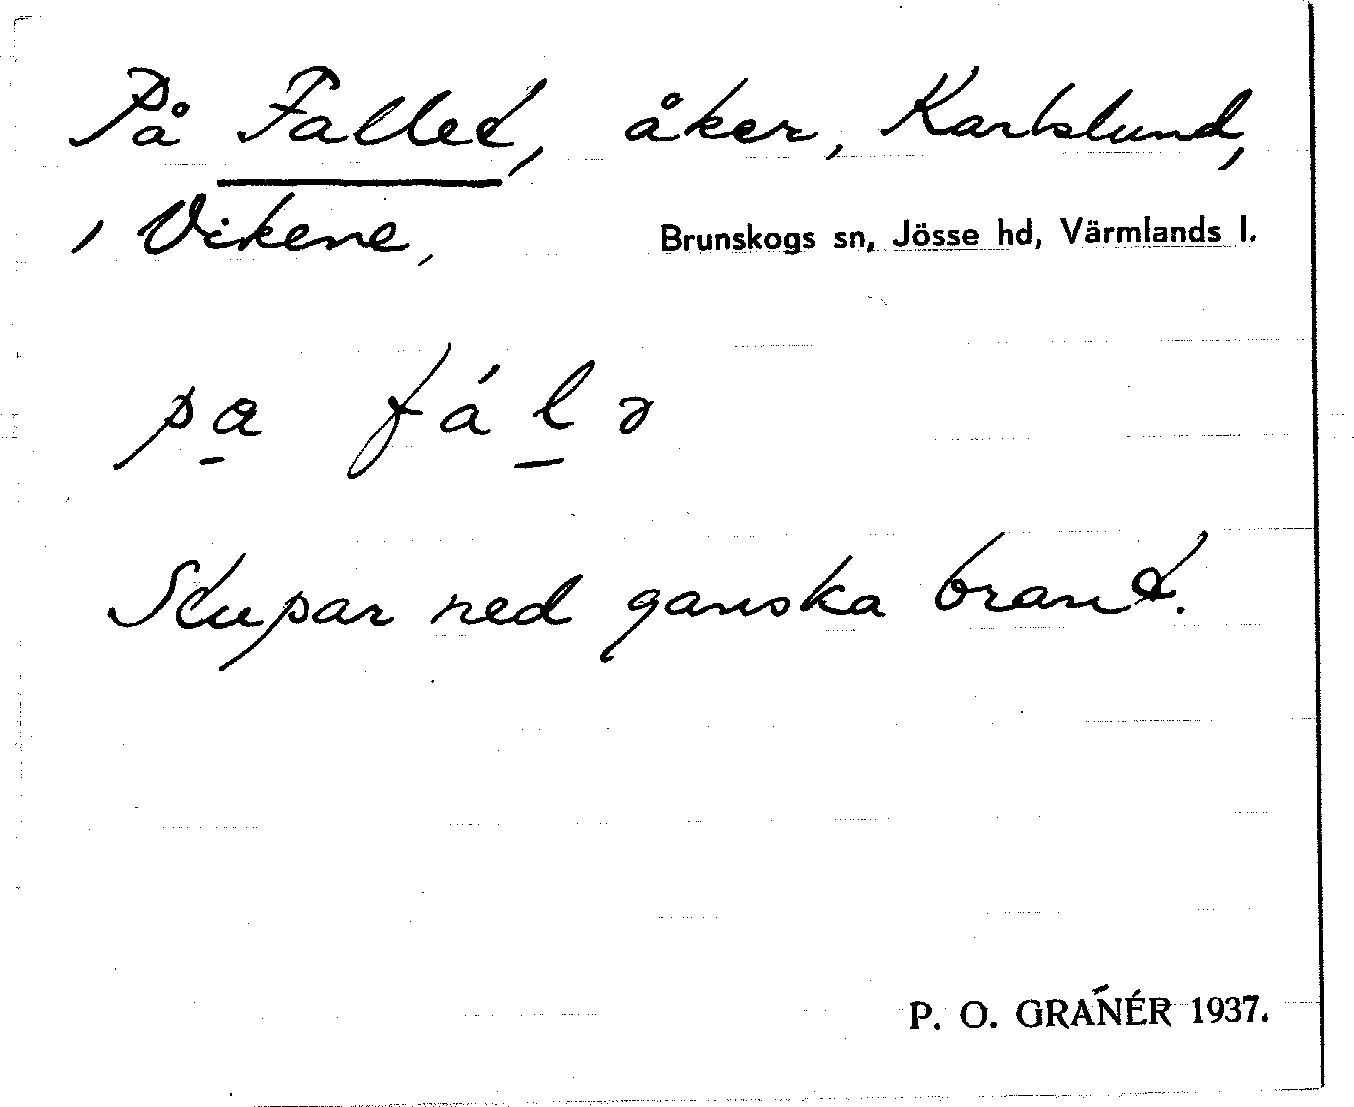 På Fallet, åker, Karlslund,
, Vikene, Brunskogs sn, Jösse hd, Värmlands l.
pa̲ fál̲ə
Stupar ned ganska brant.
P. O. GRANÉR 1937.